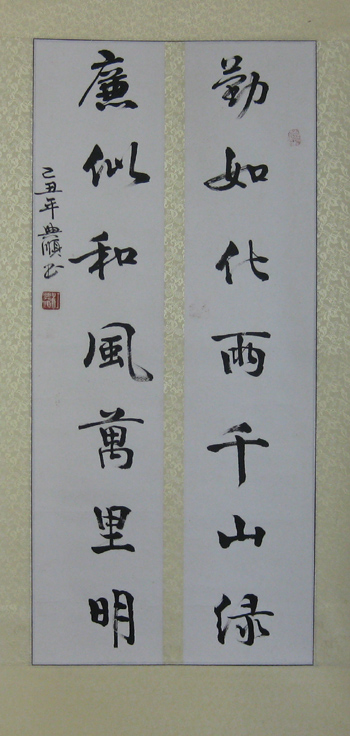 勤如化雨千山绿
廉似和風萬里明
己丑年典順书